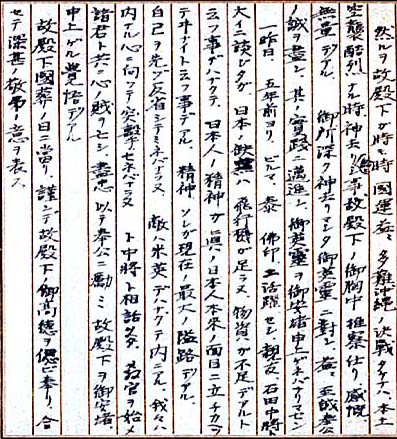 然ルヲ故殿下ガ時モ時國運益々多難沖縄ノ決戦タケナハ本土
空襲酷烈ナル時神去リ遊事故殿下ノ御胸中推察仕リ感慨
無量デアル 御所深ク神去リマシタ御英霊ニ對シ益々至誠奉公
ノ誠ヲ盡シ其ノ實践ニ邁進シ御英霊ヲ御安堵申上ゲネバナリマセン
一昨日、五年前ヨリビルマ泰佛印ニ活躍セシ親友石田中將ト
大イニ談ジタガ日本ノ缺点ハ飛行機ガ足ラヌ、物資ガ不足デアルト
云フ事デハナクテ日本人ノ精神ガ真ノ日本人本来ノ面目ニ立チカヘラ
デヰナイト云フ事デアル 精神ソレガ現在ノ最大ノ隘路デアル
自己ヲ先ヅ反省シテミネバナラヌ 敵ハ米英デハナクテ内ニアル、我々ハ
内ナル心ニ向ツテ突撃ヲセネバナラヌ ト中將ト相話シタ 各官ヲ始メ
諸君ト共ニ心ノ賊ヲ亡シ盡忠以テ奉公ニ勵ミ故殿下ヲ御安堵
申上ゲル覺悟デアル
故殿下國葬ノ日ニ當リ謹シテ故殿下ノ御高徳ヲ偲ビ奉リ、合
セテ深甚ノ敬弔ノ意ヲ表ス